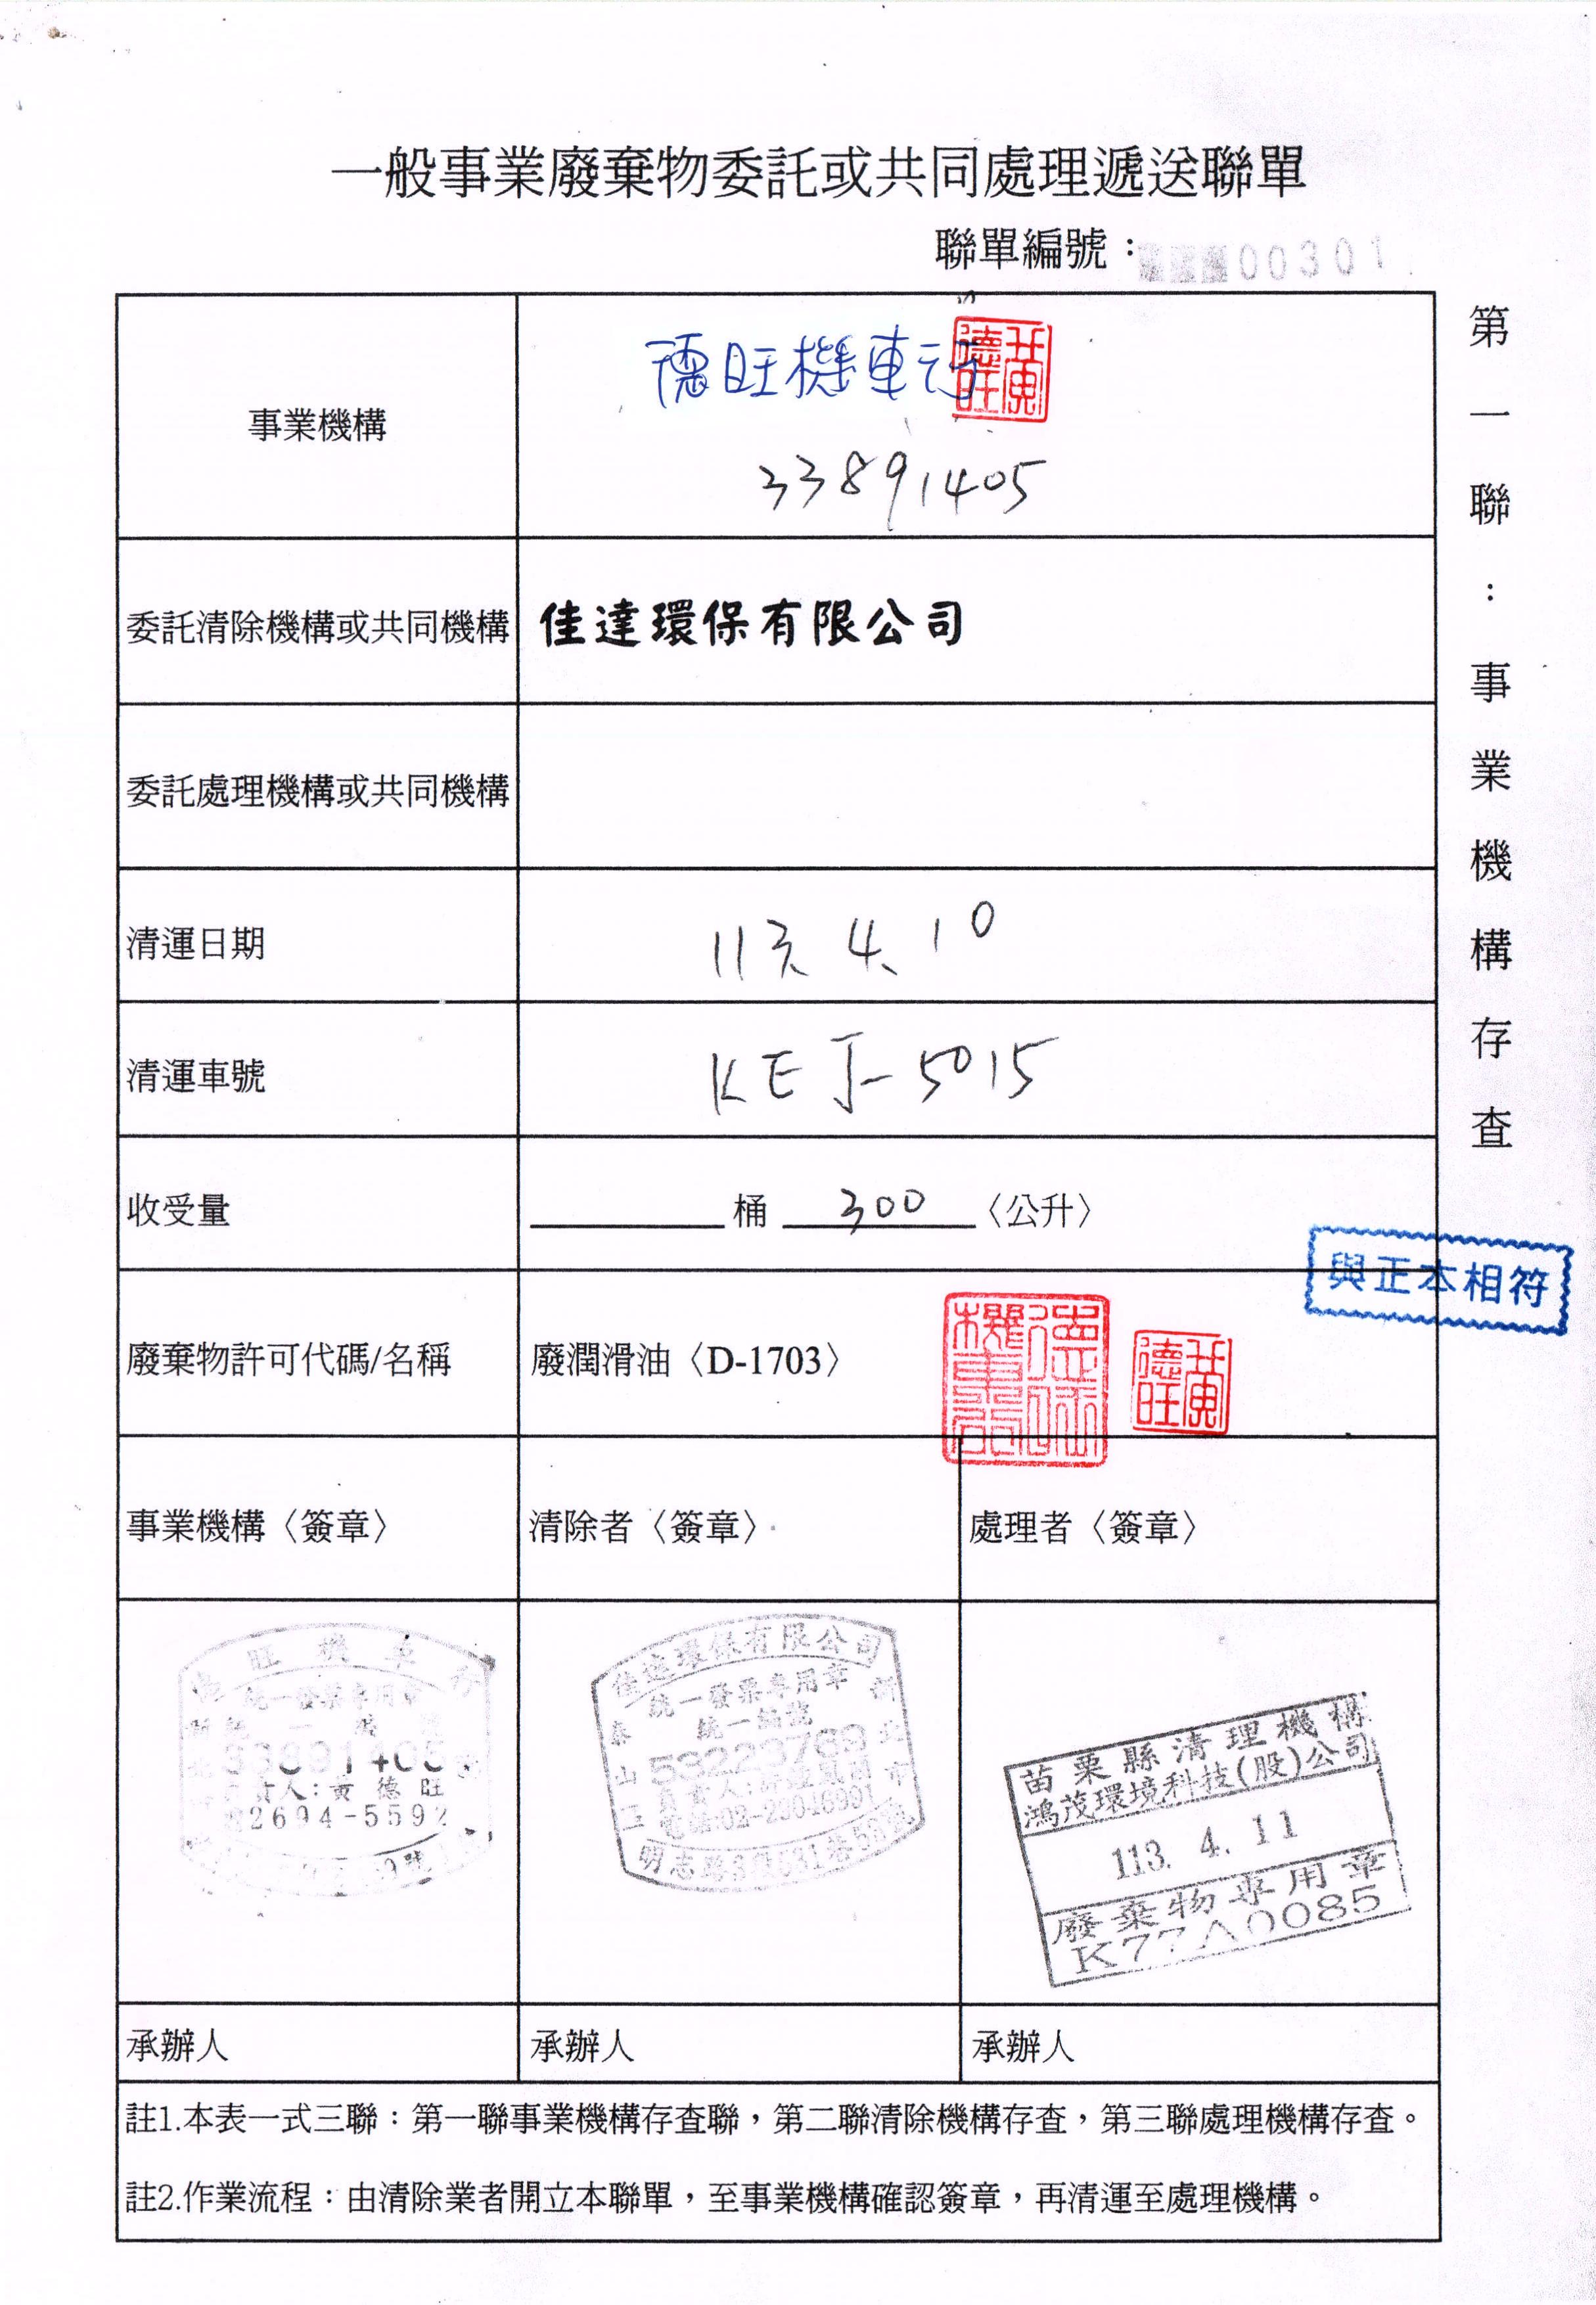 一般事業廢棄物委託或共同處理遞送聯單
聯單編號：00301
第一聯：事業機構存查
事業機構
德旺機車行
德旺黃
33891405
委託清除機構或共同機構
佳達環保有限公司
委託處理機構或共同機構
清運日期
113.4.10
清運車號
KEJ-5015
收受量
桶 300〈公升〉
與正本相符
廢棄物許可代碼/名稱
廢潤滑油〈D-1703〉
德旺黃
事業機構〈簽章〉
清除者〈簽章〉
處理者〈簽章〉
德旺機車行
統一發票專用章
33891405
負責人:黃德旺
2694-5592
佳達環保有限公司
統一發票專用章
統一編號
新北市
泰山
明志路3段
苗栗縣清理機構
鴻茂環境科技(股)公司
113. 4. 11
廢棄物專用章
K77A0085
承辦人
承辦人
承辦人
註1.本表一式三聯：第一聯事業機構存查聯，第二聯清除機構存查，第三聯處理機構存查。
註2.作業流程：由清除業者開立本聯單，至事業機構確認簽章，再清運至處理機構。